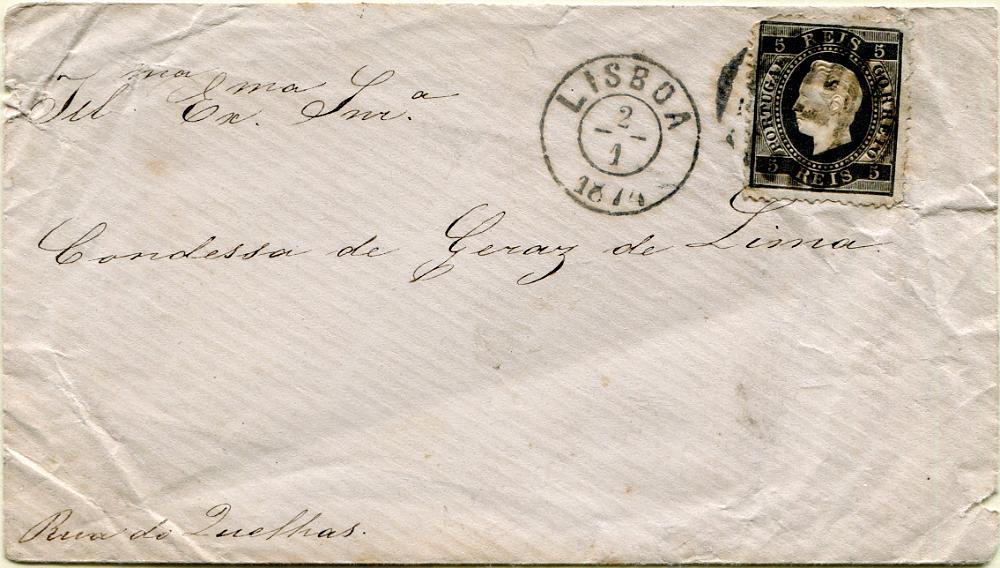 Ill.ma Ex.ma Snr.a
Condessa de Geraz de Lima
Rua do Quelhas.
LISBOA
2
1
1874
5 REIS 5
PORTUGAL
CORREIO
5 REIS 5